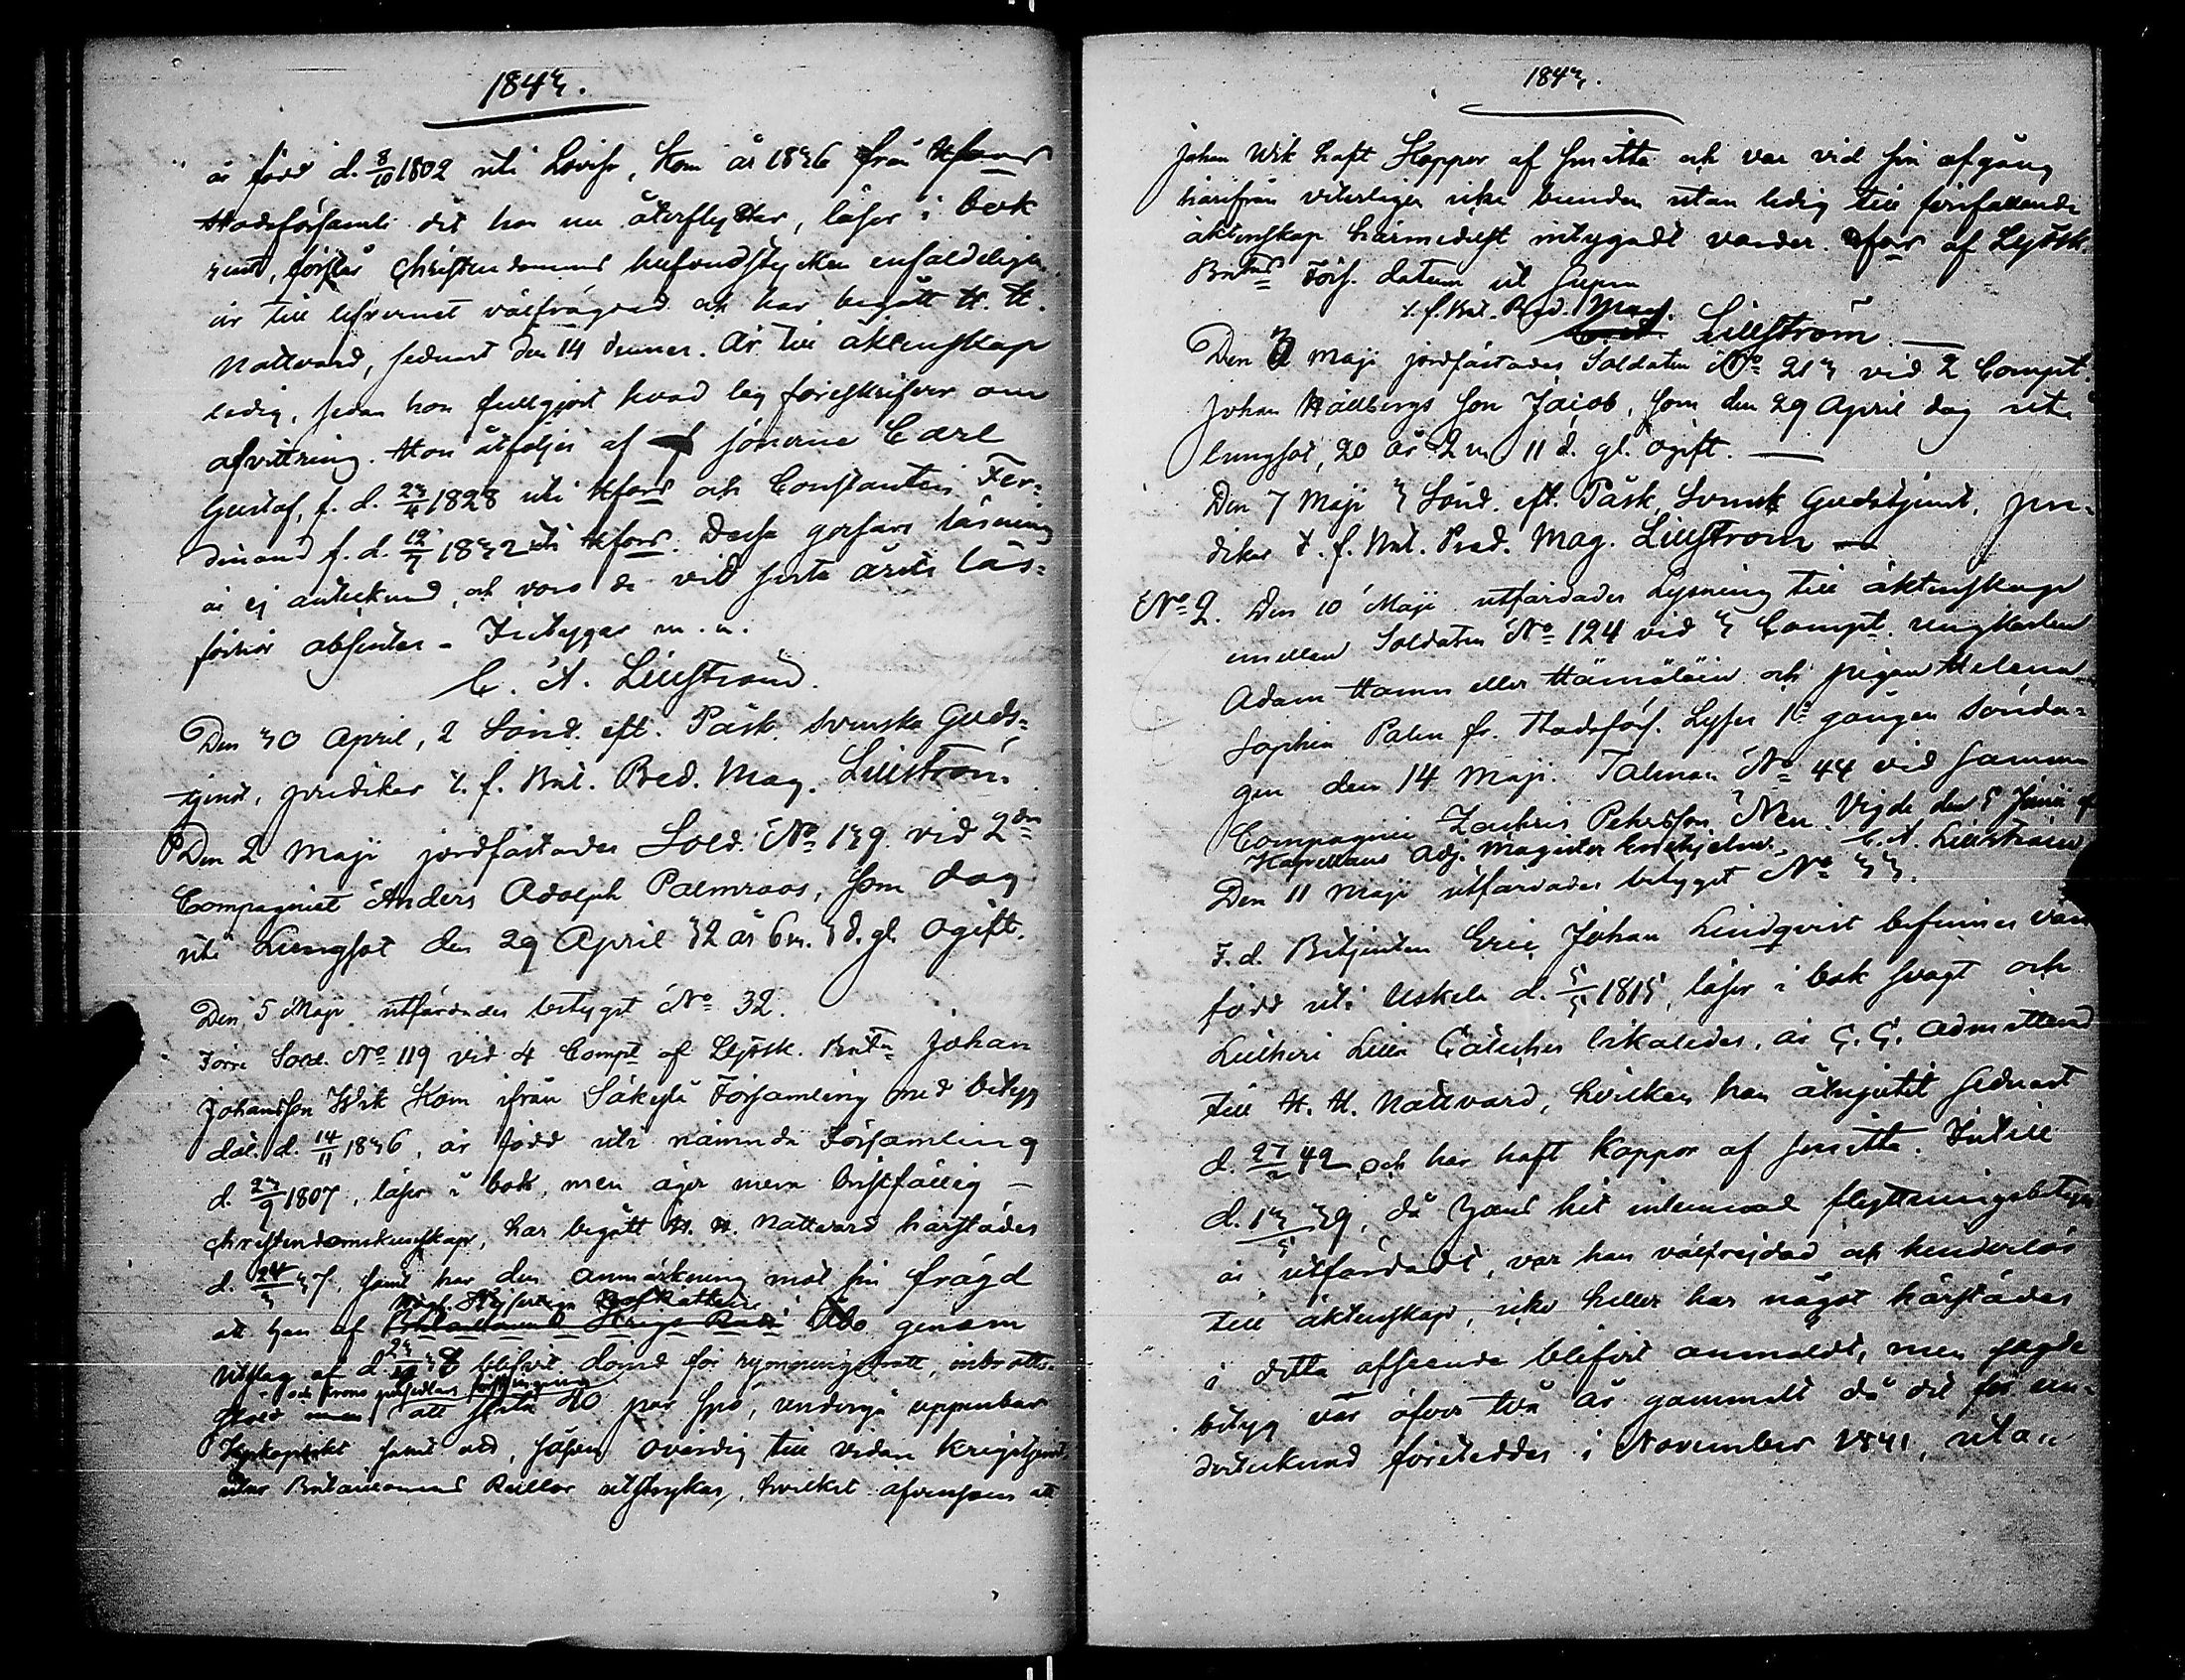 1843.
är född d. 8/10 1802 uti Lovisa, kom år 1836 från Hfors
Stadsförsaml. dit hon nu återflyttar, läser i bok
rent, förstår Christendomens hufvudstycken enfaldeligen
är till lefvernet välfrägdad och har begått H. H.
Nattvard, sednast den 14 dennes. Är till äktenskap
ledig, sedan hon fullgjort hvad lag föreskrifver om
afvittring. Hon åtföljes af sönerne Carl
Gustaf, f. d. 23/4 1828 uti Hfors och Constantin Fer-
dinand f. d. 12/7 1832 uti Hfors. Dessa gossars läsning
är ej antecknad, och voro de vid sista årets läs-
förhör absenter - Intygar m. m.
C. A. Lillström.
Den 30 April, 2 Sönd. eft. Påsk, Svenska Guds-
tjenst, predikar t. f. Bat. Pred. Mag. Lillström.
Den 2 Maji jordfästades Sold. No 139 vid 2dra
Compagniet Anders Adolph Palmroos, som dog
uti Lungsot den 29 April 32 år 6 m. 3 d. gl. ogift.
Den 5 Maji utfärdades betyget No 32.
Förre Sold. No 119 vid 4 Compt af Lifsk. Batn Johan
Johansson Wik kom ifrån Säkylä Församling med betyg
dat. d. 14/11 1836, är född uti nämnda Församling
d. 23/9 1807, läser i bok, men äger men bristfällig
christendomskunskap, har begått H. H. Nattvard härstädes
d. 24/3 37, samt har den anmärkning mot sin frägd
att han af Åbo genom
utslag af d. blifvit dömd för rymningsbrott, inbrotts-
stöld att slita 40 par spö, undergå uppenbar
Kyrkoplikt samt att, såsom ovärdig till vidare krigstjenst,
utur Bataillonens Rullor utstrykas, hvilket äfvensom att
1843.
Johan Wik haft Koppor af smitta och var vid sin afgång
härifrån veterligen icke bunden utan ledig till förefallande
äktenskap härmedelst intygadt varder. Hfors af Lifsk.
Batns Förs. datum ut supra
t. f. Bat. Pred. Mag. Lillström.
Den 3 Maji jordfästades Soldaten No 213 vid 2 Compt.
Johan Hällbergs son Jacob, som den 29 April dog uti
lungsot, 20 år 2 m 11 d. gl. ogift.
Den 7 Maji 3 Sönd. eft. Påsk, Svensk Gudstjenst, pre-
dikar t. f. Bat. Pred. Mag. Lillström
No 2. Den 10 Maji utfärdades Lysning till äktenskap
emellan Soldaten No 124 vid 3 Compt. ungkarlen
Adam Hamn eller Hämäläin och pigan Helena
Sophia Palm fr. Stadsförs. Lyses 1a gången Sönda-
gen den 14 Maji. Talman No 44 vid samma
Compagnie Zachris Pehrsson Nen. Vigde den 5 Junii af
Kapellans Adj. Magister C. A. Lillström
Den 11 Maji utfärdades betyget No 33.
F.d. Betjenten Eric Johan Lindqvist befinnes vara
född uti Uskela d. 5/5 1815, läser i bok svagt och
Lutheri Lilla Cateches likaledes, är G. G. admitterad
till H. H. Nattvard, hvilken han åtnjutit sednast
d. 27/2 42 och har haft koppor af smitta. Intill
d. 13/5 39, då hans hit inlemnade flyttningsbetyg
är utfärdadt, var han välfrejdad och hinderlös
till äktenskap, icke heller har något härstädes
i detta afseende blifvit anmäldt, men sagde
betyg var öfver två år gammalt då det för un-
dertecknad företeddes i November 1841, utan